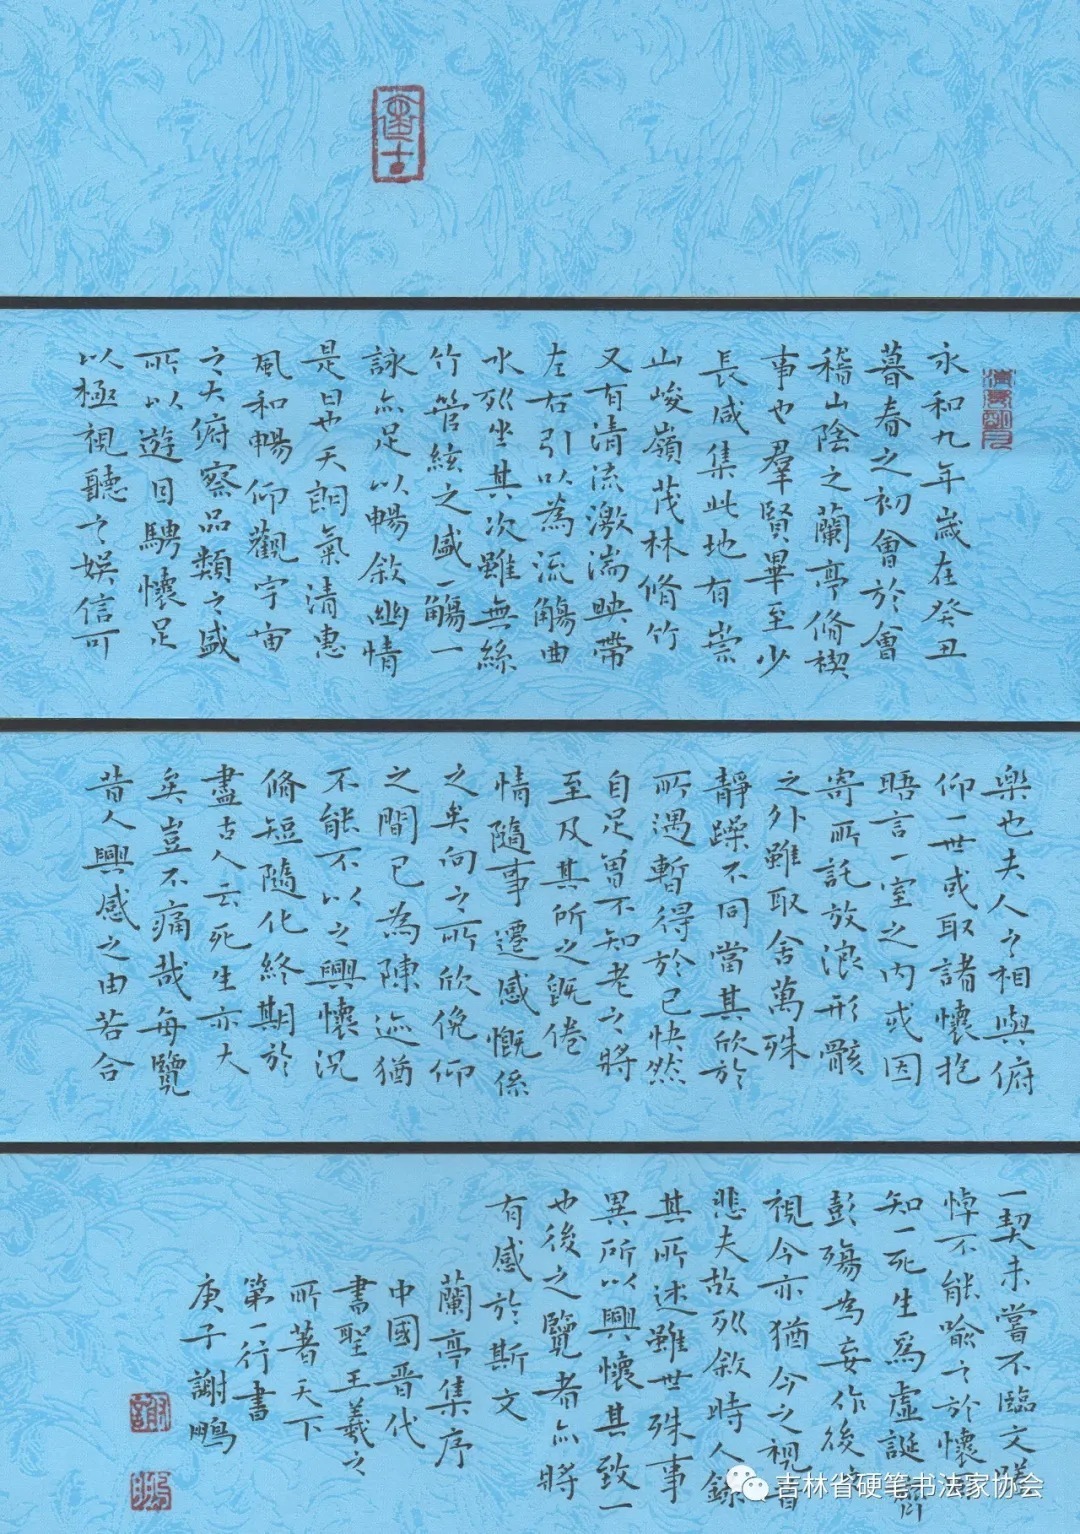 永和九年歲在癸丑
暮春之初會於會
稽山陰之蘭亭脩禊
事也羣賢畢至少
長咸集此地有崇
山峻嶺茂林脩竹
又有清流激湍映帶
左右引以為流觴曲
水列坐其次雖無絲
竹管絃之盛一觴一
詠亦足以暢敘幽情
是日也天朗氣清惠
風和暢仰觀宇宙
之大俯察品類之盛
所以遊目騁懷足
以極視聽之娛信可
樂也夫人之相與俯
仰一世或取諸懷抱
晤言一室之內或因
寄所託放浪形骸
之外雖取舍萬殊
靜躁不同當其欣於
所遇暫得於己快然
自足曾不知老之將
至及其所之既倦
情隨事遷感慨係
之矣向之所欣俛仰
之間已為陳迹猶
不能不以之興懷況
脩短隨化終期於
盡古人云死生亦大
矣豈不痛哉每覽
昔人興感之由若合
一契未嘗不臨文嗟
悼不能喻之於懷
知一死生為虛誕齊
彭殤為妄作後之
視今亦猶今之視昔
悲夫故列敘時人錄
其所述雖世殊事
異所以興懷其致一
也後之覽者亦將
有感於斯文
蘭亭集序
中國晉代
書聖王羲之
所著天下
第一行書
庚子謝鵬
吉林省硬笔书法家协会